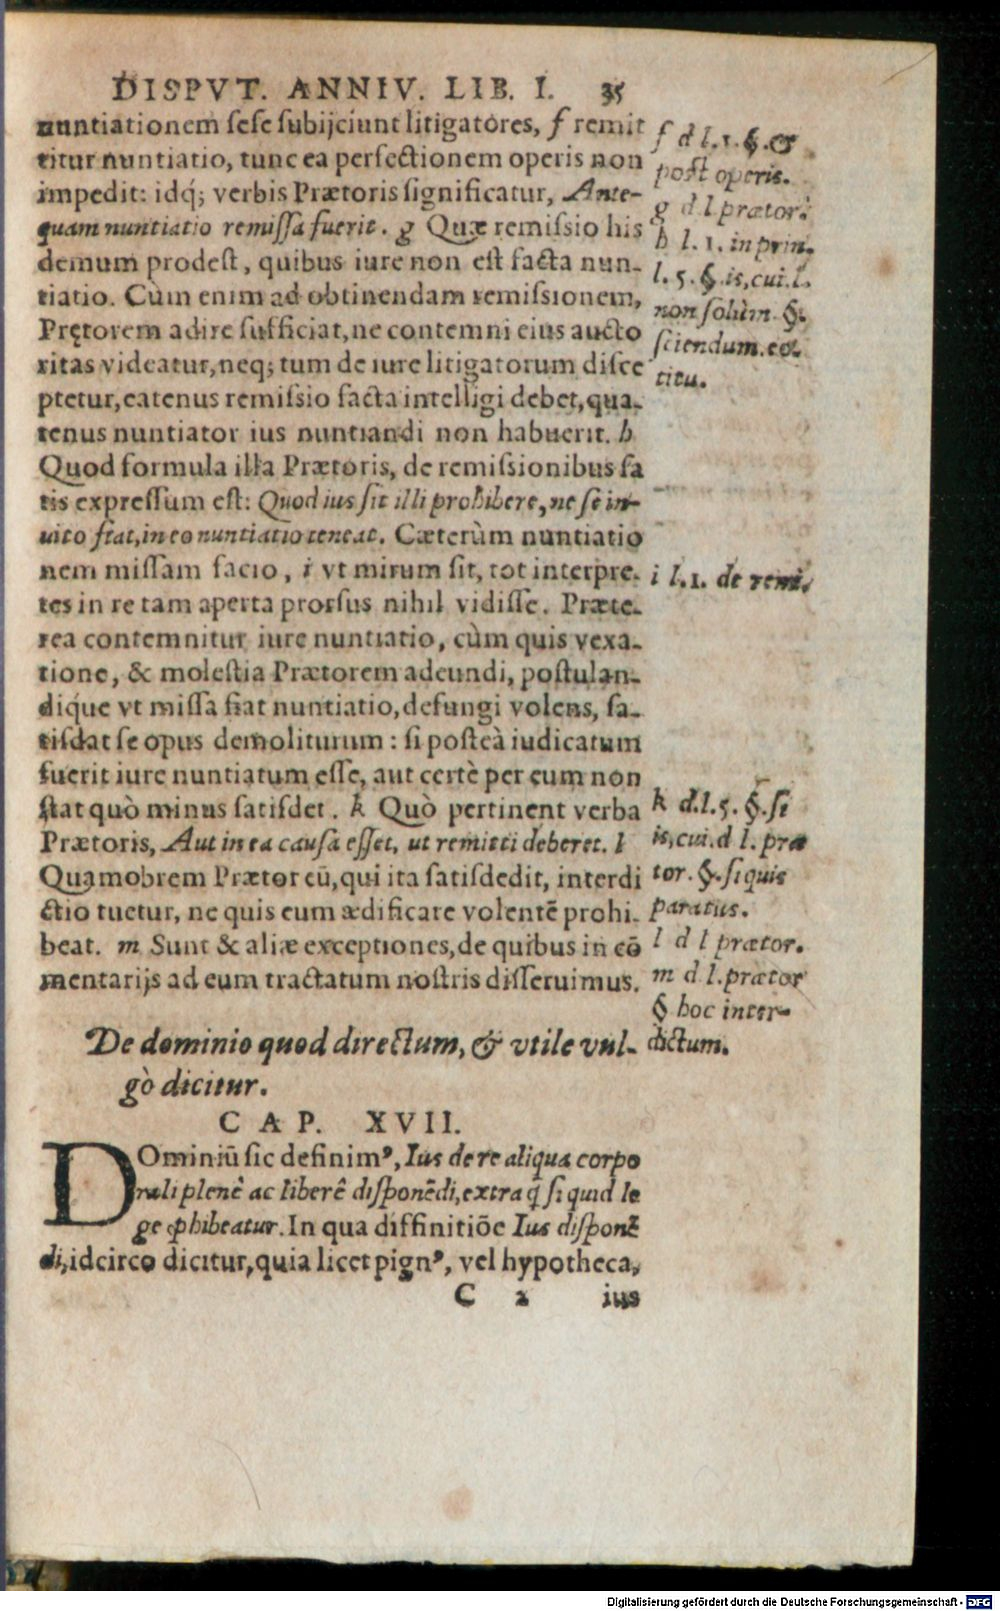 DISPVT. ANNIV. LIB. I. 35
nuntiationem sese subijciunt litigatores, f remit
titur nuntiatio, tunc ea perfectionem operis non
impedit: idq́; verbis Prætoris significatur, Ante-
quam nuntiatio remissa fuerit. g Quæ remissio his
demum prodest, quibus iure non est facta nun-
tiatio. Cùm enim ad obtinendam remissionem,
Prętorem adire sufficiat, ne contemni eius aucto
ritas videatur, neq; tum de iure litigatorum disce
ptetur, eatenus remissio facta intelligi debet, qua-
tenus nuntiator ius nuntiandi non habuerit. h
Quod formula illa Prætoris, de remissionibus sa
tis expressum est: Quod ius sit illi prohibere, ne se in-
uito fiat, in eo nuntiatio teneat. Cæterùm nuntiatio
nem missam facio, i vt mirum sit, tot interpre-
tes in re tam aperta prorsus nihil vidisse. Præte-
rea contemnitur iure nuntiatio, cùm quis vexa-
tione, & molestia Prætorem adeundi, postulan-
diq́ue vt missa fiat nuntiatio, defungi volens, sa-
tisdat se opus demoliturum: si posteà iudicatum
fuerit iure nuntiatum esse, aut certè per eum non
stat quò minus satisdet. k Quò pertinent verba
Prætoris, Aut in ea causa esset, ut remitti deberet. l
Quamobrem Prætor eū, qui ita satisdedit, interdi
ctio tuetur, ne quis eum ædificare volentē prohi-
beat. m Sunt & aliæ exceptiones, de quibus in cō
mentarijs ad eum tractatum nostris disseruimus.
f d l. 1. §. &
post operis.
g d l. prætor.
h l. 1. in prin.
l. 5. §. is, cui. l.
non solùm §.
sciendum. eo.
titu.
i l. 1. de remi.
k d. l. 5. §. si
is, cui. d l. præ
tor. §. si quis
paratus.
l d l prætor.
m d l. prætor
§ hoc inter-
dictum.
De dominio quod directum, & vtile vul-
gò dicitur.
CAP. XVII.
DOminiū sic definimꝰ, Ius de re aliqua corpo
rali plenè ac liberè disponēdi, extra q̃ si quid le
ge ꝓhibeatur. In qua diffinitiōe Ius disponē
di, idcirco dicitur, quia licet pignꝰ, vel hypotheca,
C 2 ius
Digitalisierung gefördert durch die Deutsche Forschungsgemeinschaft - DFG